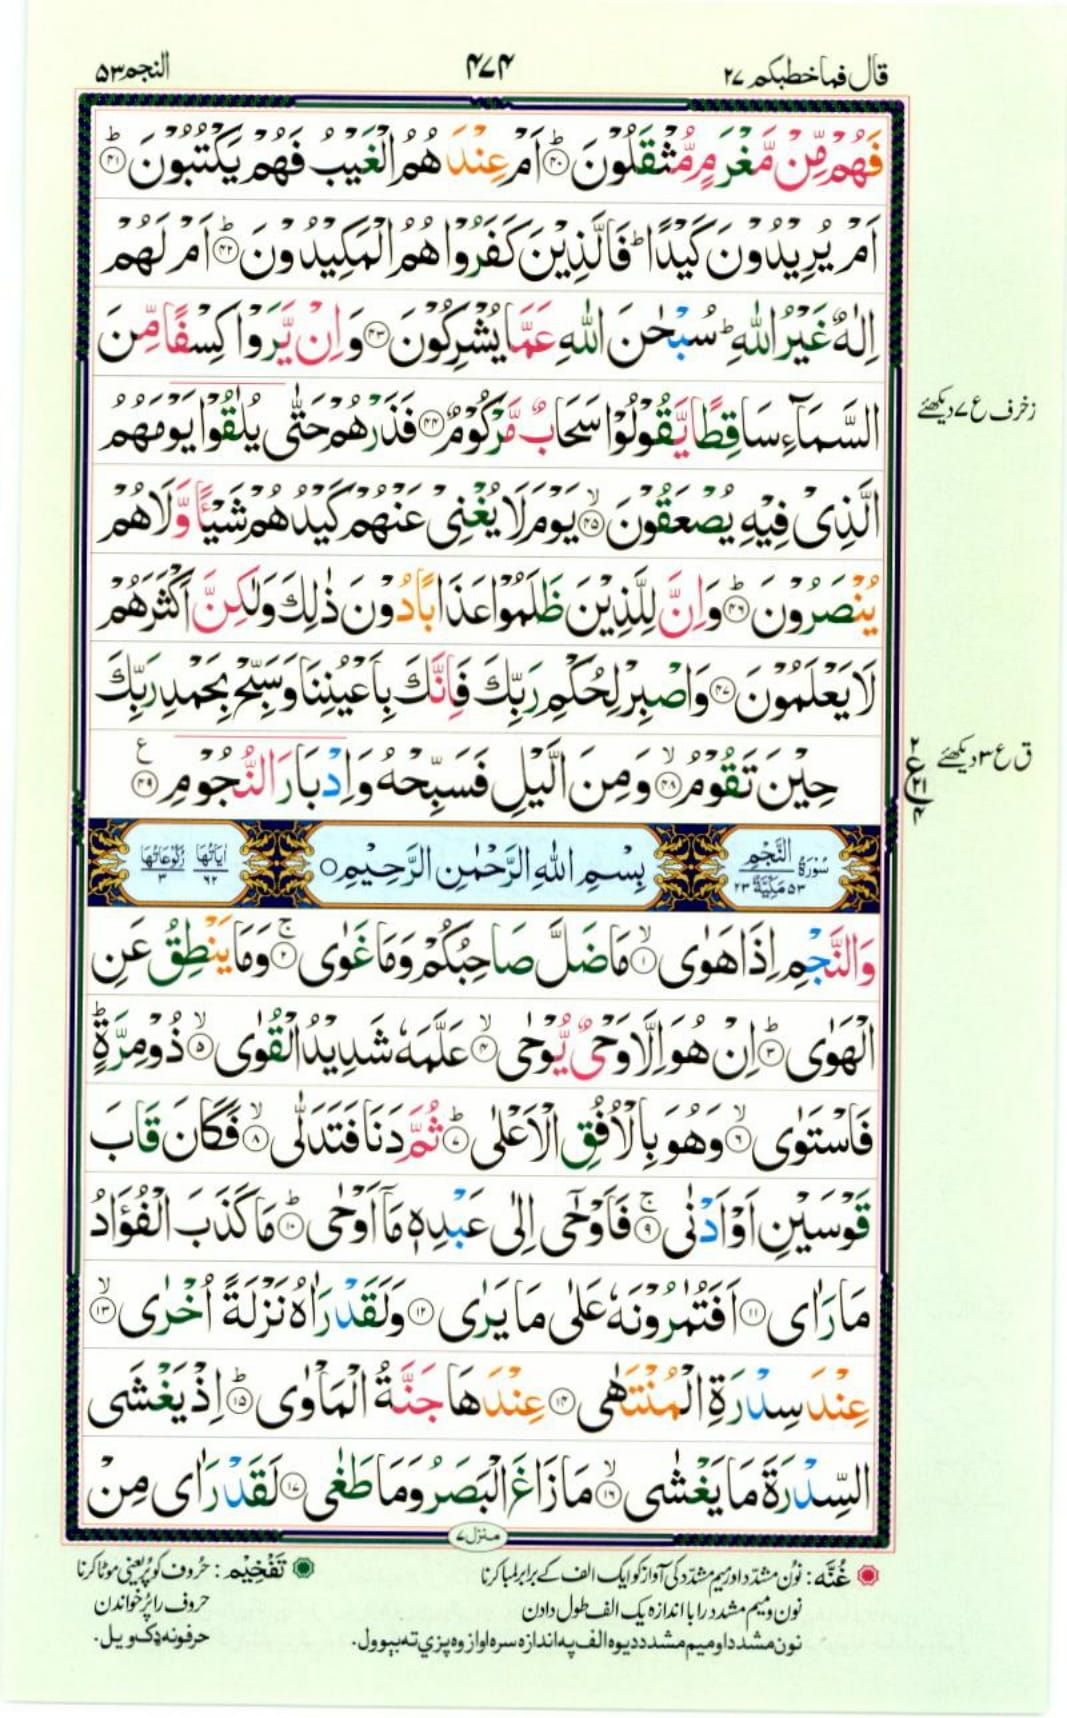 قال فما خطبكم ٢٧
٤٧٤
النجم ٥٣
فَهُمْ مِّنْ مَّغْرَمٍ مُّثْقَلُوْنَ ﴿۴۰﴾ اَمْ عِنْدَهُمُ الْغَيْبُ فَهُمْ يَكْتُبُوْنَ ﴿۴۱﴾
اَمْ يُرِيْدُوْنَ كَيْدًا ؕ فَالَّذِيْنَ كَفَرُوْا هُمُ الْمَكِيْدُوْنَ ﴿۴۲﴾ اَمْ لَهُمْ
اِلٰهٌ غَيْرُ اللّٰهِ ؕ سُبْحٰنَ اللّٰهِ عَمَّا يُشْرِكُوْنَ ﴿۴۳﴾ وَاِنْ يَّرَوْا كِسْفًا مِّنَ
السَّمَآءِ سَاقِطًا يَّقُوْلُوْا سَحَابٌ مَّرْكُوْمٌ ﴿۴۴﴾ فَذَرْهُمْ حَتّٰى يُلٰقُوْا يَوْمَهُمُ
زخرف ع ٧ دیکھئے
الَّذِىْ فِيْهِ يُصْعَقُوْنَ ﴿۴۵﴾ۙ يَوْمَ لَا يُغْنِىْ عَنْهُمْ كَيْدُهُمْ شَيْـًٔا وَّلَا هُمْ
يُنْصَرُوْنَ ﴿۴۶﴾ؕ وَاِنَّ لِلَّذِيْنَ ظَلَمُوْا عَذَابًا دُوْنَ ذٰلِكَ وَلٰكِنَّ اَكْثَرَهُمْ
لَا يَعْلَمُوْنَ ﴿۴۷﴾ وَاصْبِرْ لِحُكْمِ رَبِّكَ فَاِنَّكَ بِاَعْيُنِنَا وَسَبِّحْ بِحَمْدِ رَبِّكَ
حِيْنَ تَقُوْمُ ﴿۴۸﴾ۙ وَمِنَ الَّيْلِ فَسَبِّحْهُ وَاِدْبَارَ النُّجُوْمِ ﴿۴۹﴾
ق ع ٣ دیکھئے
٢
ع
٢١
٤
سُوْرَةُ النَّجْمِ ٥٣ مَكِّيَّةٌ ٢٣
بِسْمِ اللّٰهِ الرَّحْمٰنِ الرَّحِيْمِ
اٰيَاتُهَا ٦٢ رُكُوْعَاتُهَا ٣
وَالنَّجْمِ اِذَا هَوٰى ﴿۱﴾ۙ مَا ضَلَّ صَاحِبُكُمْ وَمَا غَوٰى ﴿۲﴾ۚ وَمَا يَنْطِقُ عَنِ
الْهَوٰى ﴿۳﴾ؕ اِنْ هُوَ اِلَّا وَحْىٌ يُّوْحٰى ﴿۴﴾ۙ عَلَّمَهٗ شَدِيْدُ الْقُوٰى ﴿۵﴾ۙ ذُوْ مِرَّةٍ ؕ
فَاسْتَوٰى ﴿۶﴾ۙ وَهُوَ بِالْاُفُقِ الْاَعْلٰى ﴿۷﴾ؕ ثُمَّ دَنَا فَتَدَلّٰى ﴿۸﴾ۙ فَكَانَ قَابَ
قَوْسَيْنِ اَوْ اَدْنٰى ﴿۹﴾ۚ فَاَوْحٰٓى اِلٰى عَبْدِهٖ مَاۤ اَوْحٰى ﴿۱۰﴾ؕ مَا كَذَبَ الْفُؤَادُ
مَا رَاٰى ﴿۱۱﴾ اَفَتُمٰرُوْنَهٗ عَلٰى مَا يَرٰى ﴿۱۲﴾ وَلَقَدْ رَاٰهُ نَزْلَةً اُخْرٰى ﴿۱۳﴾ۙ
عِنْدَ سِدْرَةِ الْمُنْتَهٰى ﴿۱۴﴾ عِنْدَهَا جَنَّةُ الْمَاْوٰى ﴿۱۵﴾ؕ اِذْ يَغْشَى
السِّدْرَةَ مَا يَغْشٰى ﴿۱۶﴾ۙ مَا زَاغَ الْبَصَرُ وَمَا طَغٰى ﴿۱۷﴾ لَقَدْ رَاٰى مِنْ
منزل ٧
غُنَّه: نُون مشدّد اور میم مشدّد کی آواز کو ایک الف کے برابر لمبا کرنا
نون و میم مشدد را با اندازه یک الف طول دادن
نون مشدد او میم مشدد دیوه الف په اندازه سره اواز وه پزي ته بېوول.
تَفْخِيْم: حُروف کو پُر یعنی موٹا کرنا
حروف را پُر خواندن
حرفونه ډک ویل.